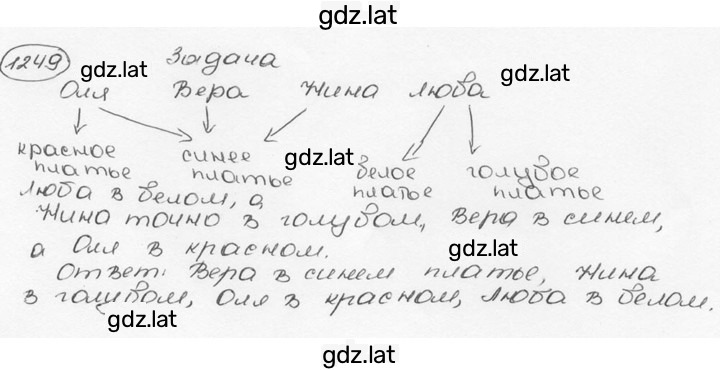 gdz.lat
1249 gdz.lat Задача gdz.lat
Оля Вера Нина Люба
красное платье синее платье gdz.lat белое платье голубое платье
Люба в белом, а
Нина точно в голубом, Вера в синем,
а Оля в красном. gdz.lat
Ответ: Вера в синем платье, Нина
в голубом, Оля в красном, Люба в белом.
gdz.lat
gdz.lat